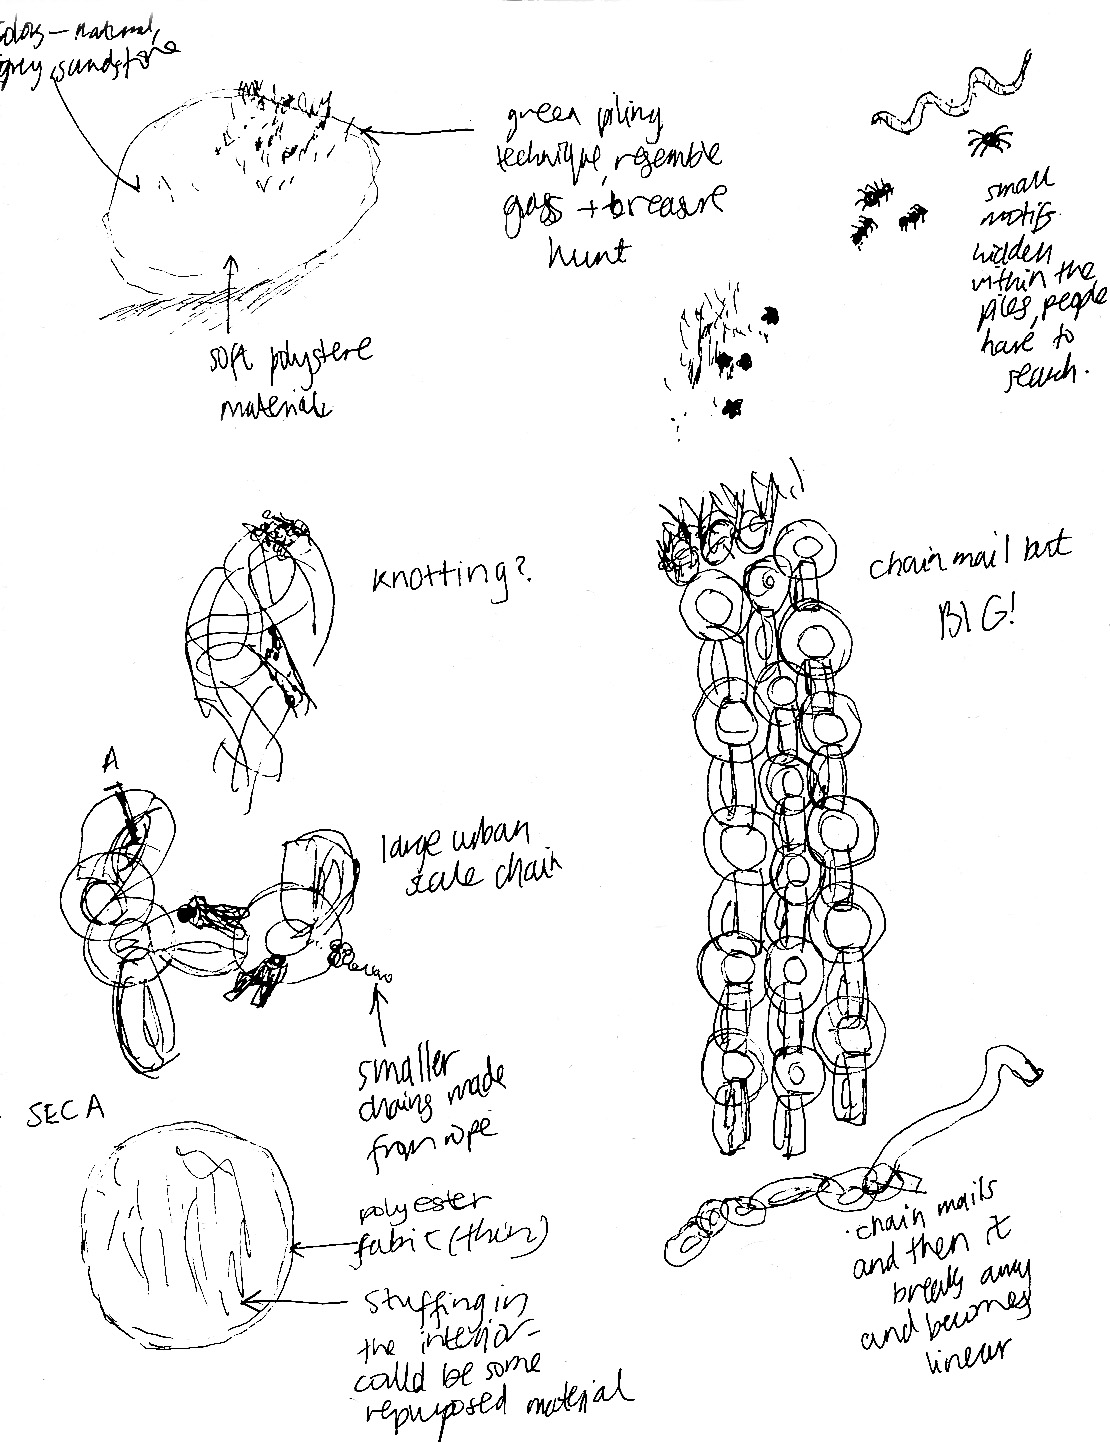 colors - natural,
grey, sandstone
green piling
technique, resemble
gass + treasure
hunt
small
motifs
hidden
within the
piles, people
have to
search.
soft polystere
materials
knotting?
chain mail but
BIG!
A
large urban
scale chain
smaller
chains made
from rope
SEC A
polyester
fabic (thin)
stuffing in
the interior -
could be some
repurposed material
chain mails
and then it
breaks away
and becomes
linear